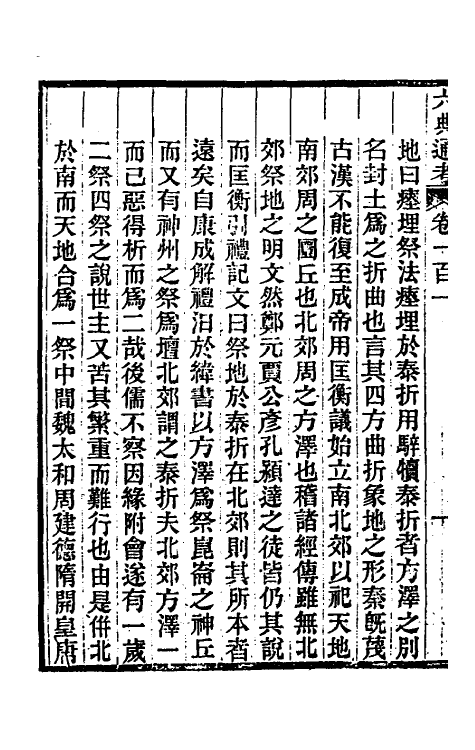 六典通考　卷一百一
地曰瘞埋祭法瘞埋於泰折用騂犢泰折者方澤之別
名封土爲之折曲也言其四方曲折象地之形秦旣蔑
古漢不能復至成帝用匡衡議始立南北郊以祀天地
南郊周之圜丘也北郊周之方澤也稽諸經傳雖無北
郊祭地之明文然鄭元賈公彥孔穎達之徒皆仍其說
而匡衡引禮記文曰祭地於泰折在北郊則其所本者
遠矣自康成解禮汨於緯書以方澤爲祭崑崙之神丘
而又有神州之祭爲壇北郊謂之泰折夫北郊方澤一
而已惡得析而爲二哉後儒不察因緣附會遂有一歲
二祭四祭之說世主又苦其繁重而難行也由是倂北
於南而天地合爲一祭中間魏太和周建德隋開皇唐